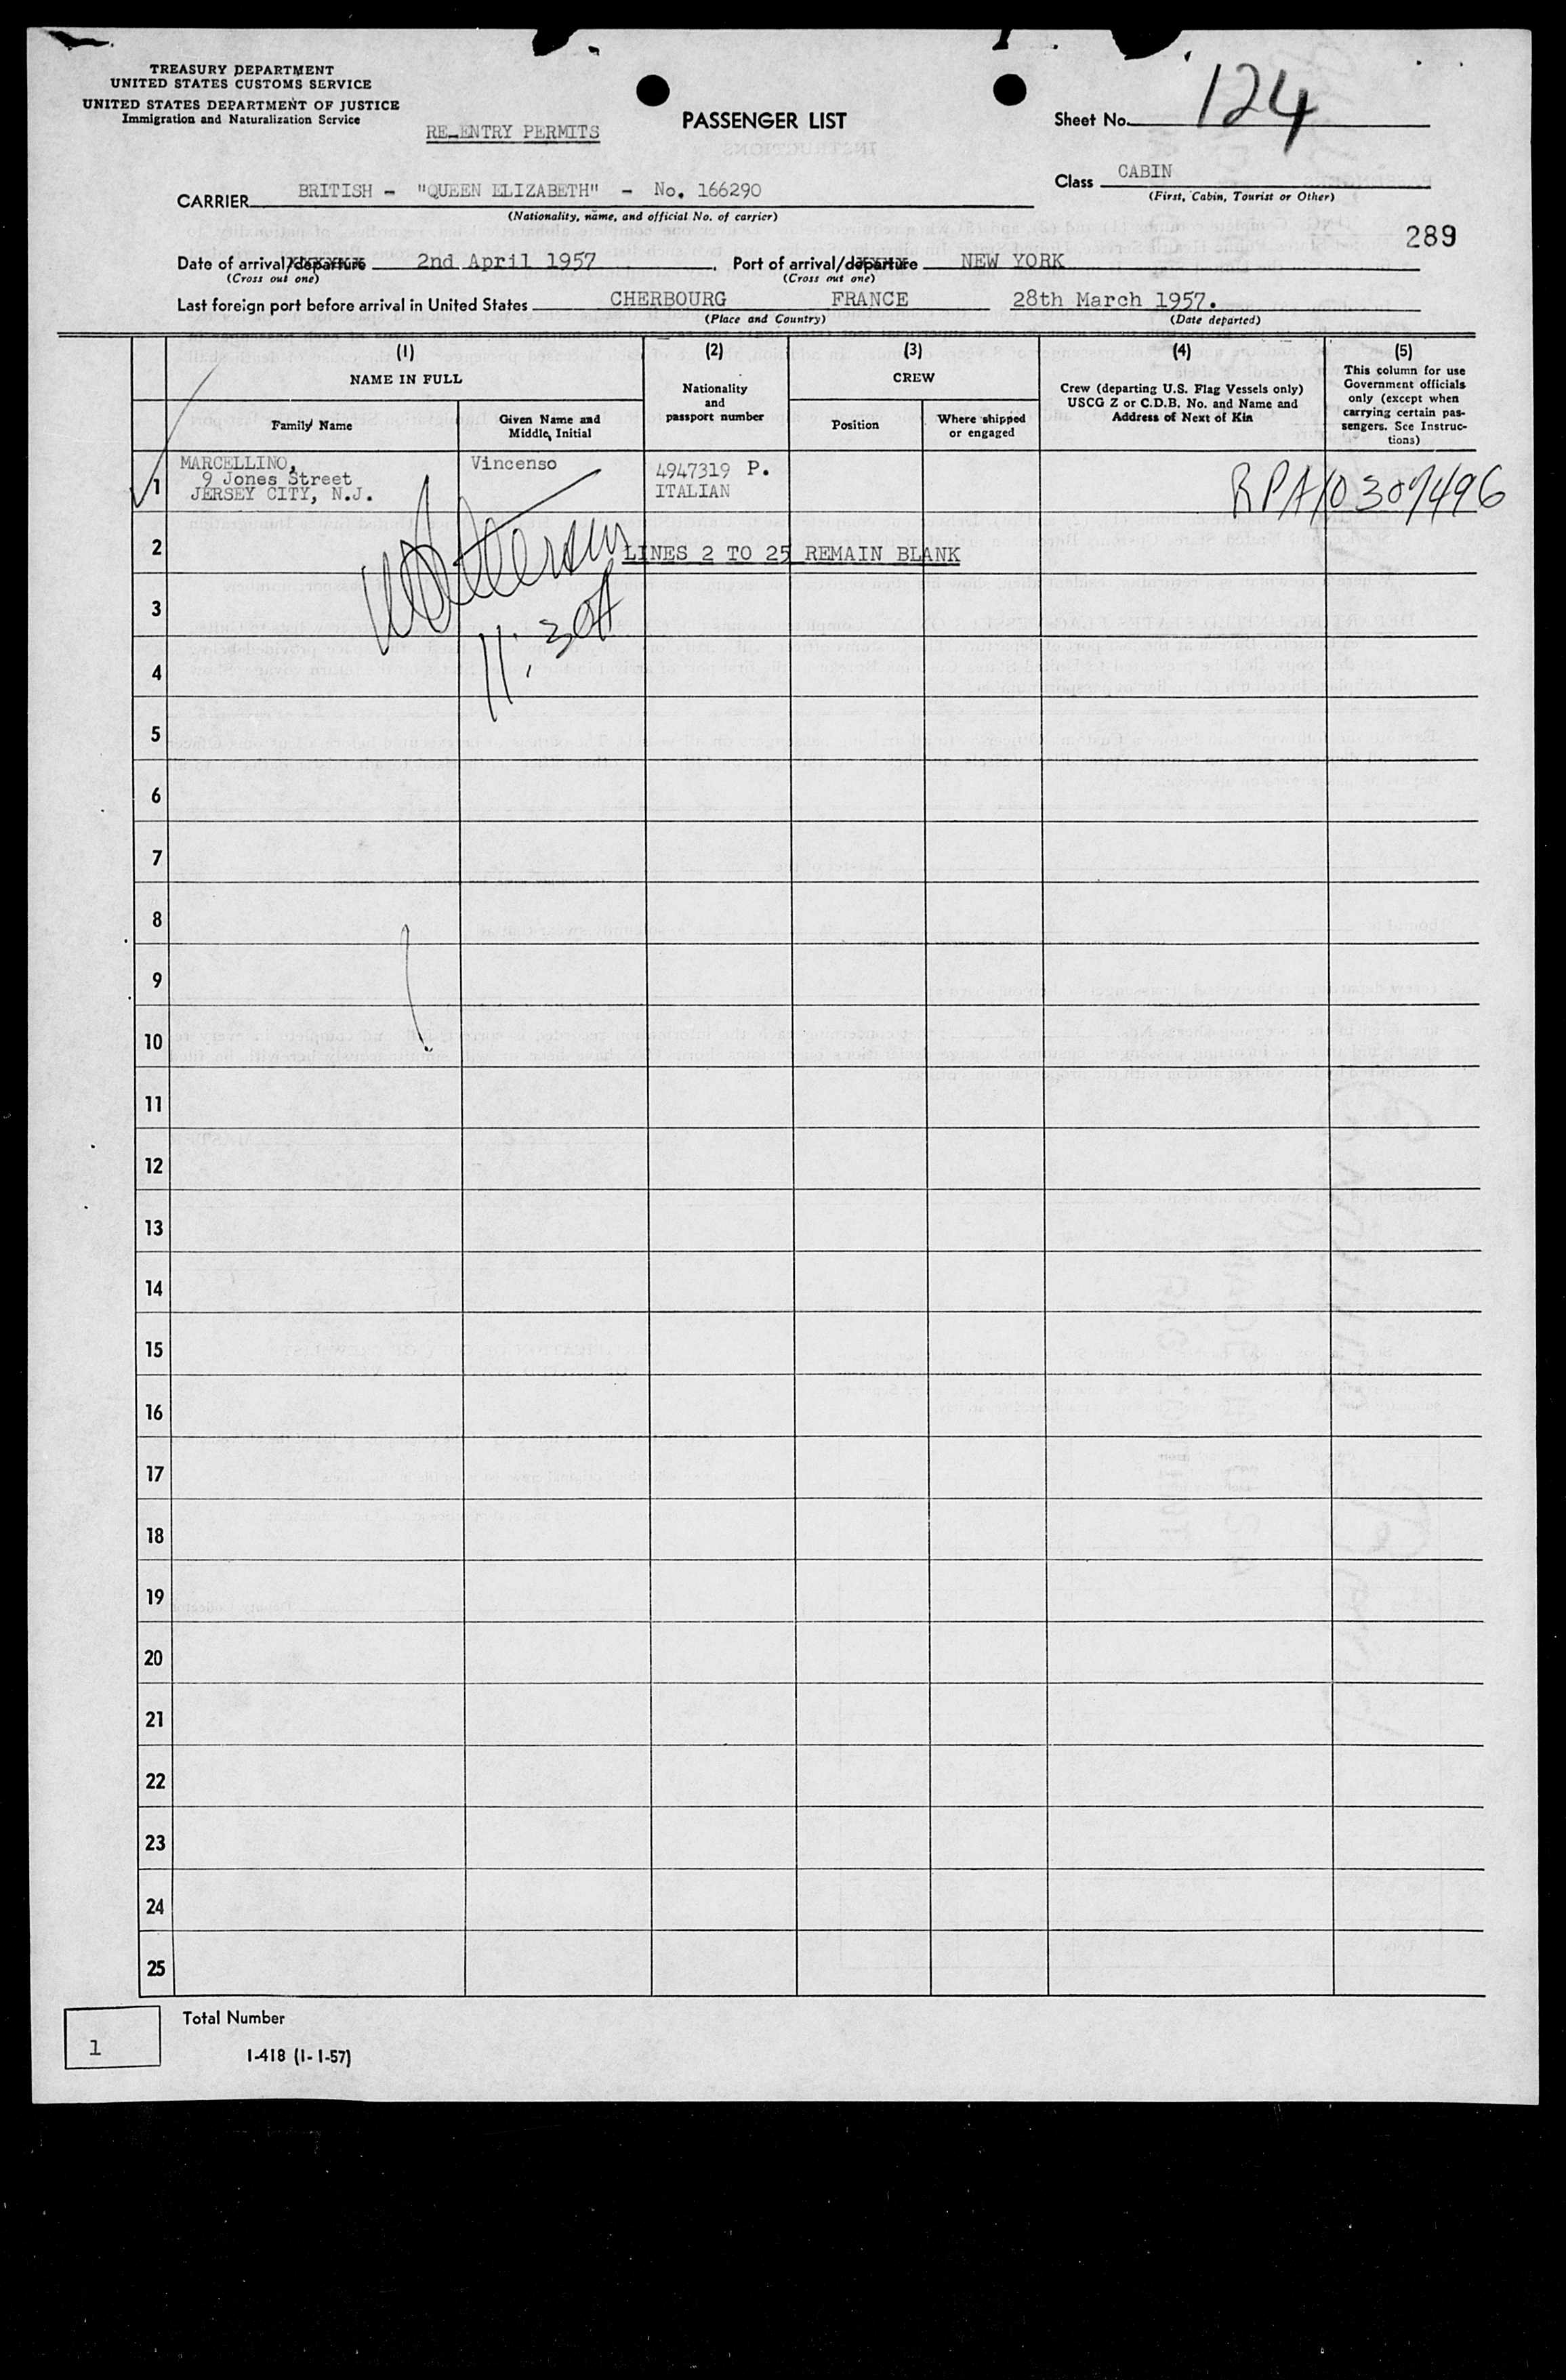 TREASURY DEPARTMENT
UNITED STATES CUSTOMS SERVICE
UNITED STATES DEPARTMENT OF JUSTICE
Immigration and Naturalization Service
RE-ENTRY PERMITS
PASSENGER LIST
Sheet No. 124
Class CABIN
(First, Cabin, Tourist or Other)
CARRIER BRITISH - "QUEEN ELIZABETH" - No. 166290
(Nationality, name, and official No. of carrier)
289
Date of arrival/departure 2nd April 1957. Port of arrival/departure NEW YORK
(Cross out one) (Cross out one)
Last foreign port before arrival in United States CHERBOURG FRANCE 28th March 1957.
(Place and Country) (Date departed)
(1) (2) (3) (4) (5)
NAME IN FULL
Nationality and passport number
CREW
Crew (departing U.S. Flag Vessels only)
USCG Z or C.D.B. No. and Name and
Address of Next of Kin
This column for use
Government officials
only (except when
carrying certain pas-
sengers. See Instruc-
tions)
Family Name
Given Name and
Middle Initial
Position
Where shipped
or engaged
1 MARCELLINO, Vincenso 4947319 P.
9 Jones Street ITALIAN
JERSEY CITY, N.J.
2 LINES 2 TO 25 REMAIN BLANK
3
4
5
6
7
8
9
10
11
12
13
14
15
16
17
18
19
20
21
22
23
24
25
1
Total Number
I-418 (1-1-57)